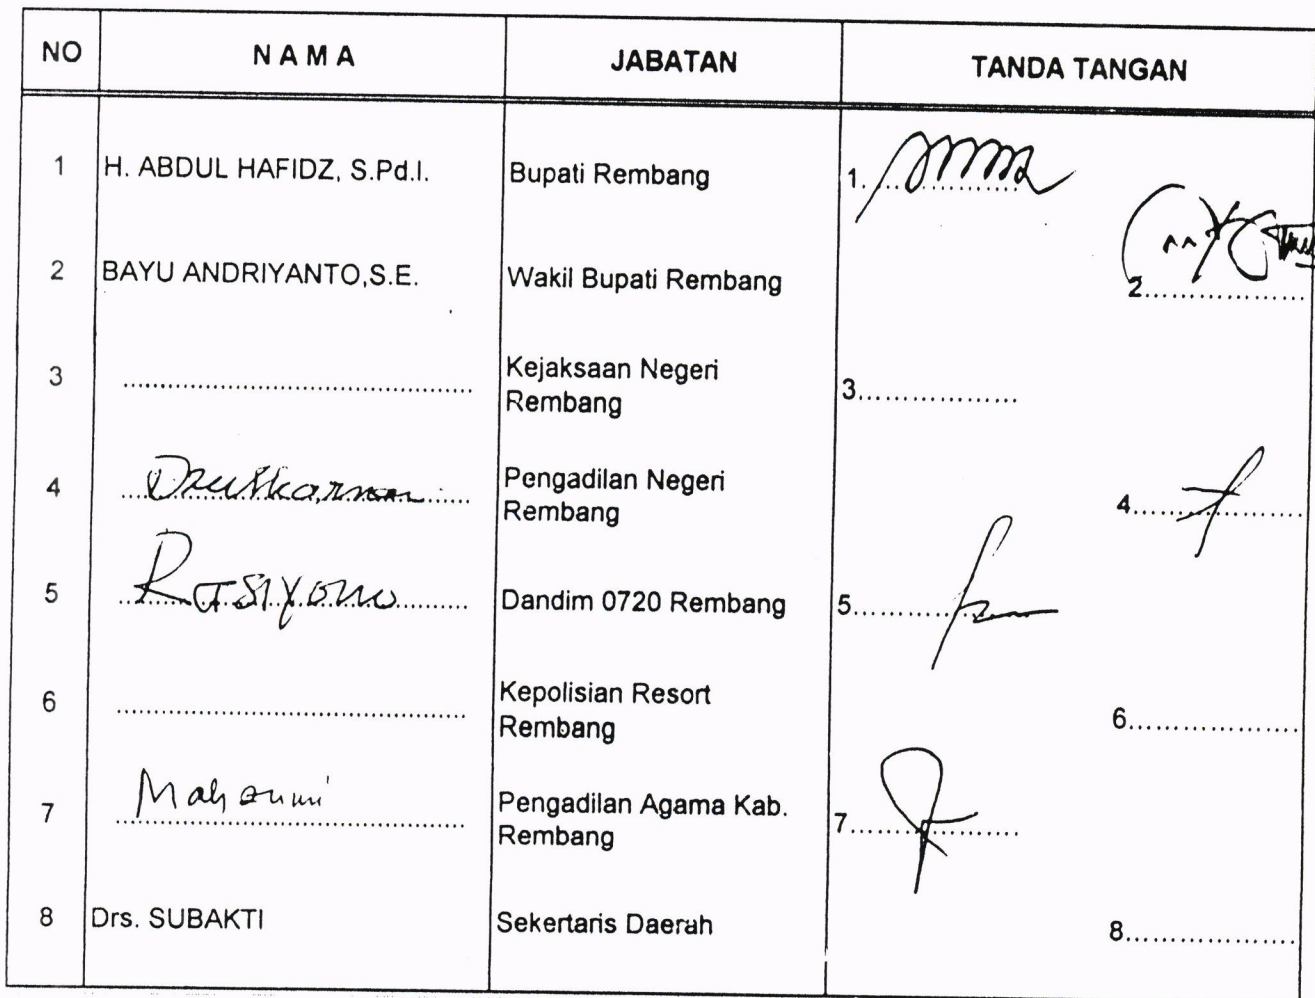 NO N A M A JABATAN TANDA TANGAN
1 H. ABDUL HAFIDZ, S.Pd.I. Bupati Rembang 1. ..................
2 BAYU ANDRIYANTO,S.E. Wakil Bupati Rembang 2..................
3 .......................................... Kejaksaan Negeri
Rembang 3..................
4 Pengadilan Negeri
Rembang 4..................
5 Dandim 0720 Rembang 5..................
6 .......................................... Kepolisian Resort
Rembang 6..................
7 Pengadilan Agama Kab.
Rembang 7..................
8 Drs. SUBAKTI Sekertaris Daerah 8..................